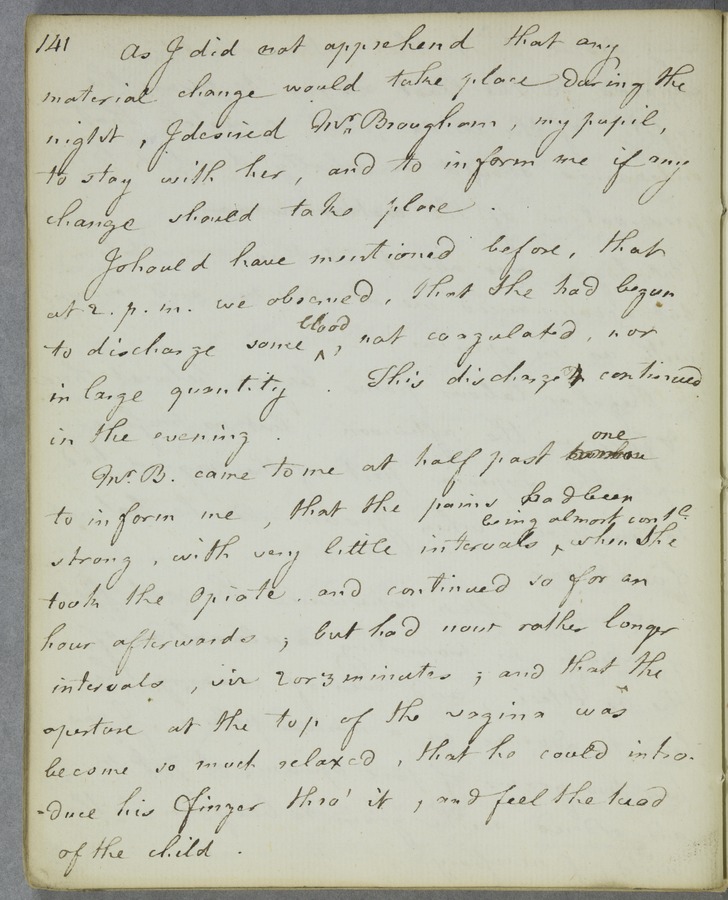 141 As I did not apprehend that any
material change would take place during the
night, I desired Mr. Brougham, my pupil,
to stay with her, and to inform me if any
change should take place.
I should have mentioned before, that
at 2. p. m. we observed, that she had begun
blood
to discharge some ^, not coagulated, nor
in large quantity. This discharge continued
in the evening.
one
Mr. B. came to me at half past
to inform me, that the pains had been
being almost contl.
strong, with very little intervals ^ when she
took the opiate and continued so for an
hour afterwards; but had now rather longer
intervals, viz 2 or 3 minutes; and that the
aperture at the top of the vagina was
become so much relaxed, that he could intro-
-duce his finger thro' it, and feel the head
of the child.